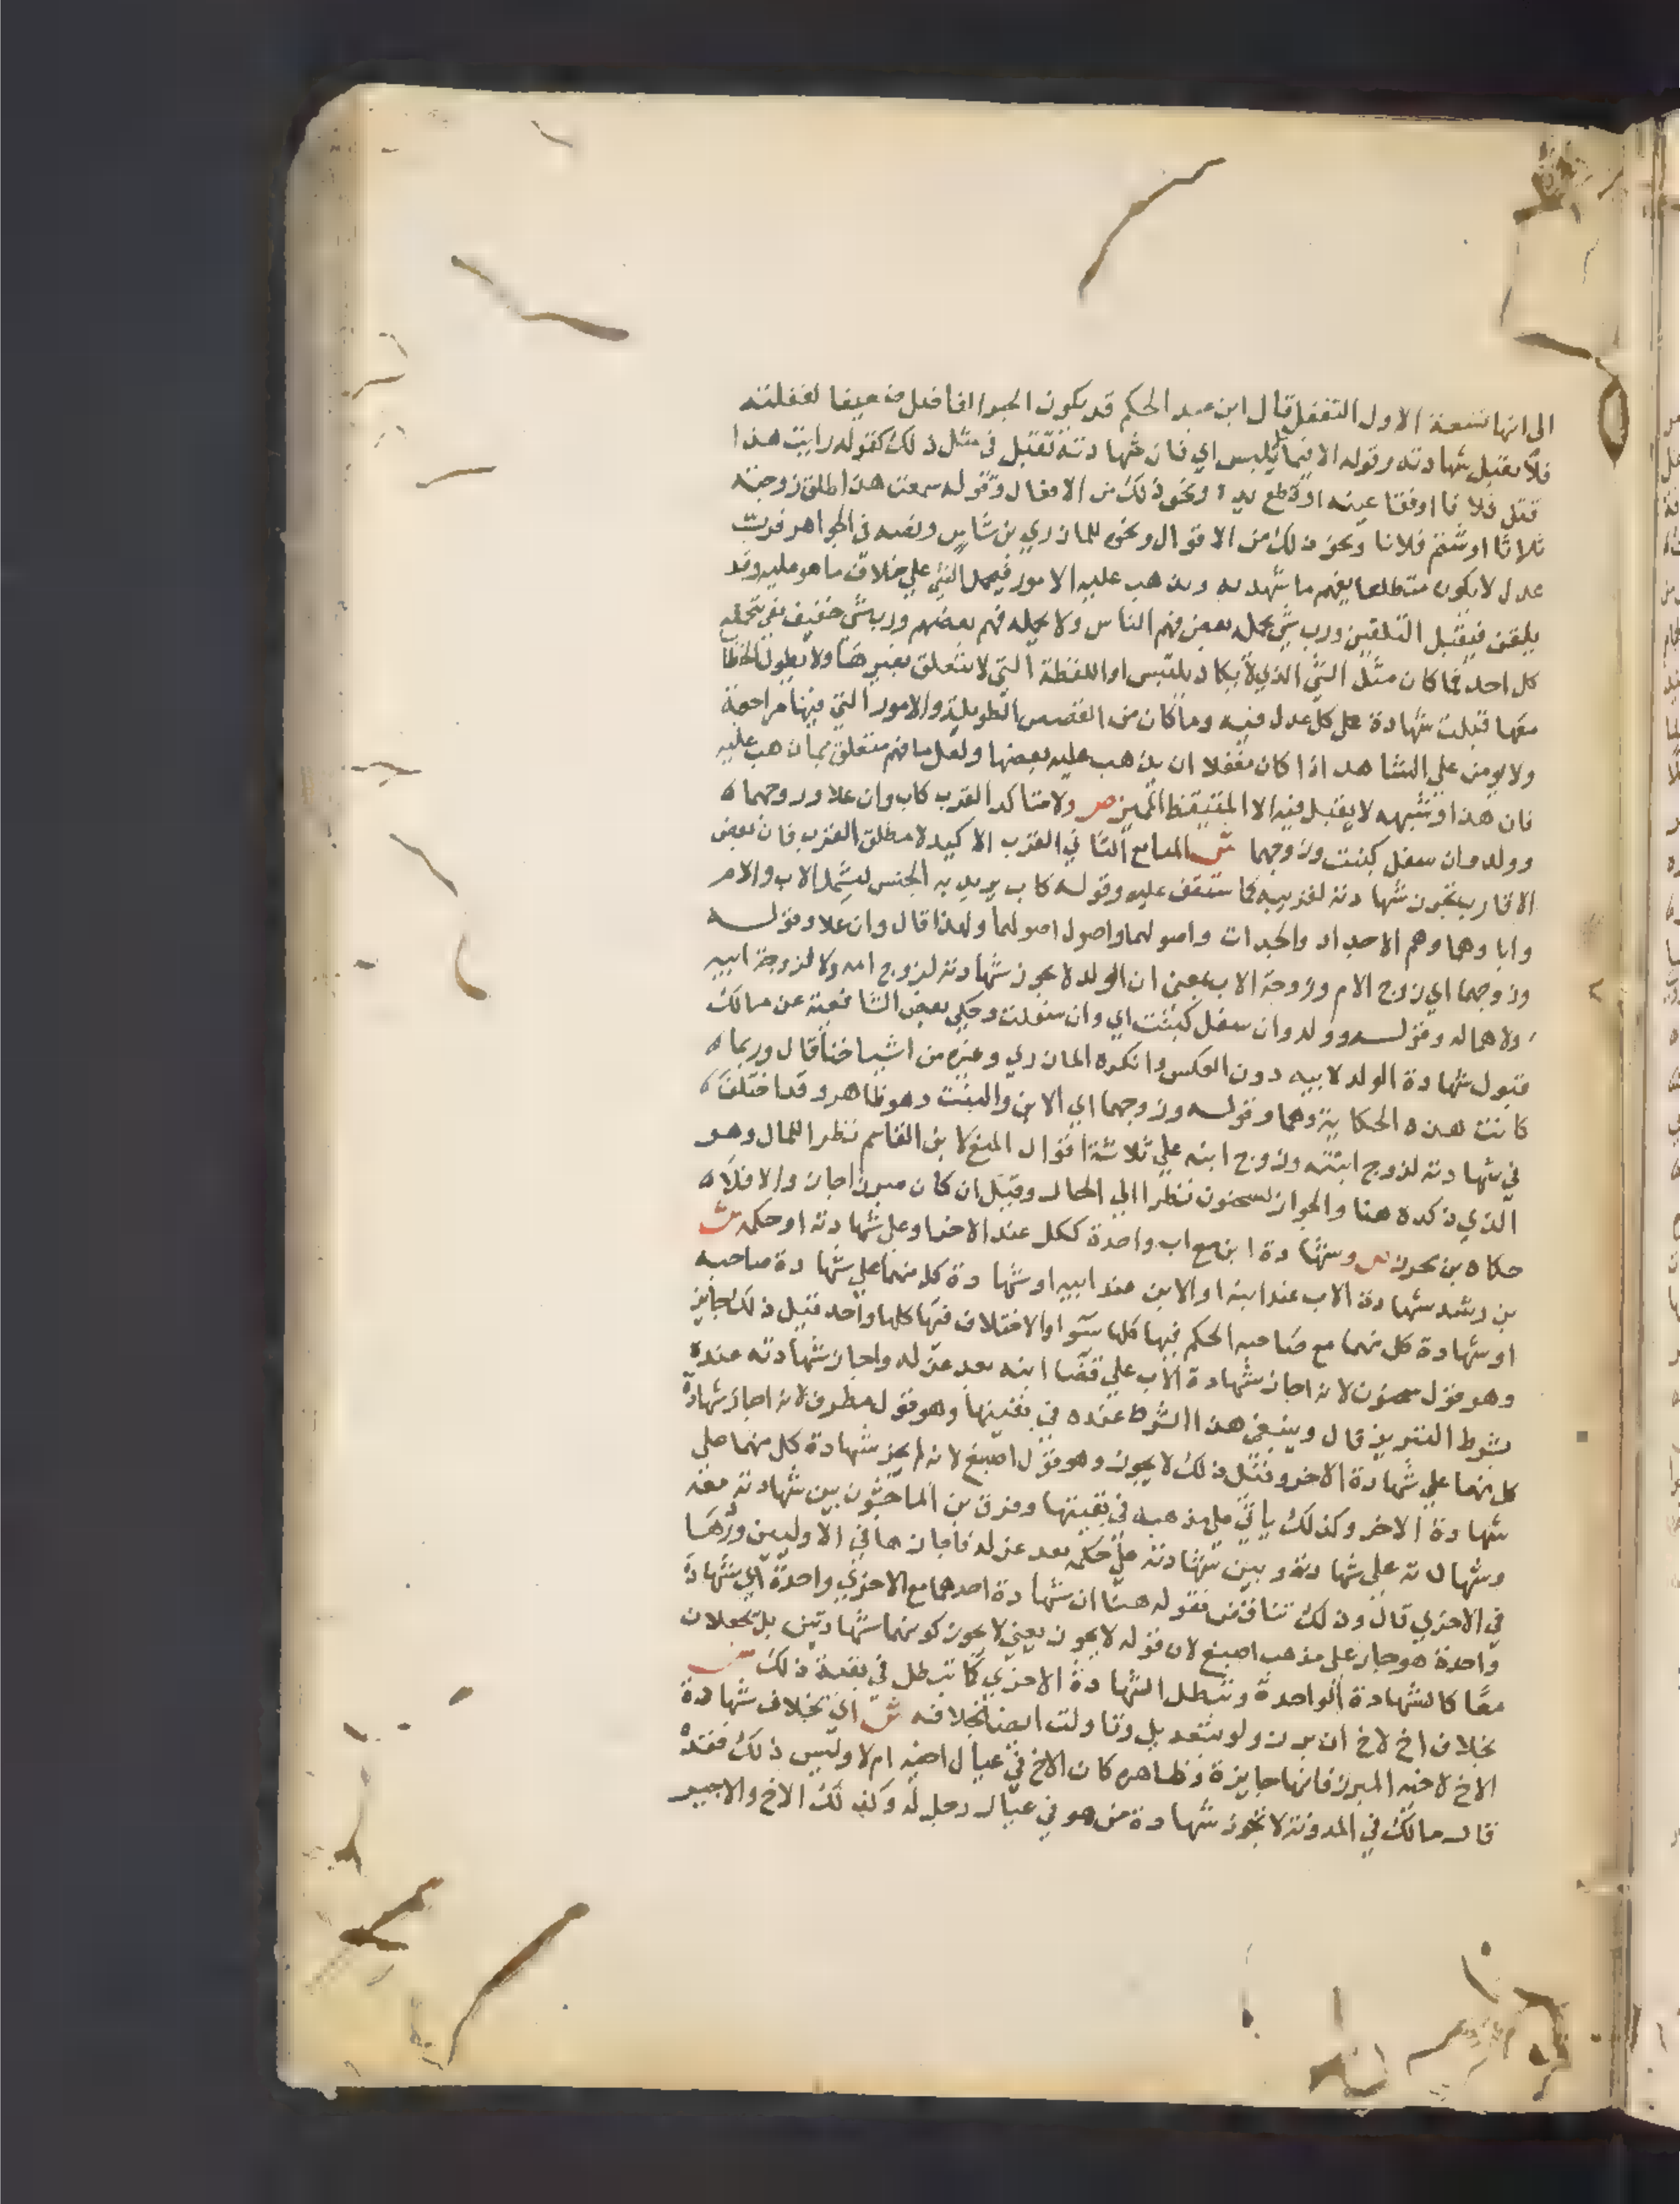 الى انها تسعة الاول التغفل قال ابن عبد الحكم قد يكون الخير الفاضل ضعيفا لغفلته
فلا يقبل شهادته وقوله الا فيما لا يلبس اي فان شهادته تقبل في مثل ذلك كقوله رايت هذا
قتل فلانا او فقا عينه او قطع يده ونحو ذلك من الافعال وقوله سمعت هذا طلق زوجته
ثلاثا او شتم فلانا ونحو ذلك من الاقوال ونحوه للمازري بن شاس ونصه في الجواهر فرب
عدل لا يكون متطلعا يفهم ما شهد به ويذهب عليه الامور فيحمل الشي على خلاف ما هو عليه وقد
يلقن فيقبل التلقين ورب شي يحمله بعض فهم الناس ولا يحمله فهم بعضهم ورب شي خفيف يتحمله
كل احد فما كان مثل الشي الذي لا يكاد يلتبس او اللفظة التي لا تتعلق بغيرها ولا يطول الخطا
معها قبلت شهادة على كل عدل فيه وما كان من القصص الطويلة والامور التي فيها مراجعة
ولا يومن على الشاهد اذا كان مغفلا ان يذهب عليه بعضها ولعل ما فهم متعلق بما ذهب عليه
فان هذا وشبهه لا يقبل فيه الا المتيقظ المميز ص ولا متاكد القرب كاب وان علا وزوجهما
وولد وان سفل كبنت وزوجهما ش المانع الثاني القرب الاكيد لا مطلق القرب فان بعض
الاقارب تجوز شهادته لقريبه كما ستقف عليه وقوله كاب يريد به الجنس ليشمل الاب والام
واباوهما وهم الاجداد والجدات واصولهما واصول اصولهما ولهذا قال وان علا وقوله
وزوجهما اي زوج الام وزوجة الاب بمعنى ان الولد لا يجوز شهادته لزوج امه ولا لزوجة ابيه
ولا هما له وقوله وولد وان سفل كبنت اي وان سفلت وحكى بعض الشافعية عن مالك
قبول شهادة الولد لابيه دون العكس وانكره المازري وغيره من اشياخنا قال وربما
كانت هذه الحكاية وهما وقوله وزوجهما اي الابن والبنت وهو ظاهر وقد اختلف
في شهادته لزوج ابنته وزوج ابنه على ثلاثة اقوال المنع لابن القاسم نظرا للمال وهو
الذي ذكره هنا والجواز لسحنون نظرا الى الحال وقيل ان كان مبرزا جاز والا فلا
حكاه بن محرز ص وشهادة ابن مع اب واحدة ككل عند الاخر او على شهادته او حكمه ش
بن رشد شهادة الاب عند ابنه او الابن عند ابيه او شهادة كل منهما على شهادة صاحبه
او شهادة كل منهما مع صاحبه الحكم فيها كلها سوا والاختلاف فيها كلها واحد قيل ذلك جايز
وهو قول سحنون لانه اجاز شهادة الاب على قضا ابنه بعد عزله واجاز شهادته عنده
بشرط التبريز قال وينبغي هذا الشرط عنده في بقيتها وهو قول مطرف لانه اجاز شهادة
كل منهما على شهادة الاخر وقيل ذلك لا يجوز وهو قول اصبغ لانه لم يجز شهادة كل منهما على
شهادة الاخر وكذلك ياتي على مذهبه في بقيتها وفرق بن الماجشون بين شهادته معه
وشهادته على شهادته وبين شهادته على حكمه بعد عزله فاجازها في الاوليين وردها
في الاخرى قال وذلك تناقض فقوله هنا ان شهادة احدهما مع الاخرى واحدة اي شهادة
واحدة هو جار على مذهب اصبغ لان قوله لا يجوز يعني لا يجوز كونهما شهادتين بل تجعلان
معا كالشهادة الواحدة وتبطل الشهادة الاخرى كما تبطل في بقية ذلك ص
بخلاف اخ لاخ ان برز ولو بتعديل وتاولت ايضا بخلافه ش اي بخلاف شهادة
الاخ لاخيه المبرز فانها جايزة وظاهره كان الاخ في عيال اخيه ام لا وليس ذلك فقد
قال مالك في المدونة لا تجوز شهادة من هو في عيال رجل له وكذلك الاخ والاجير